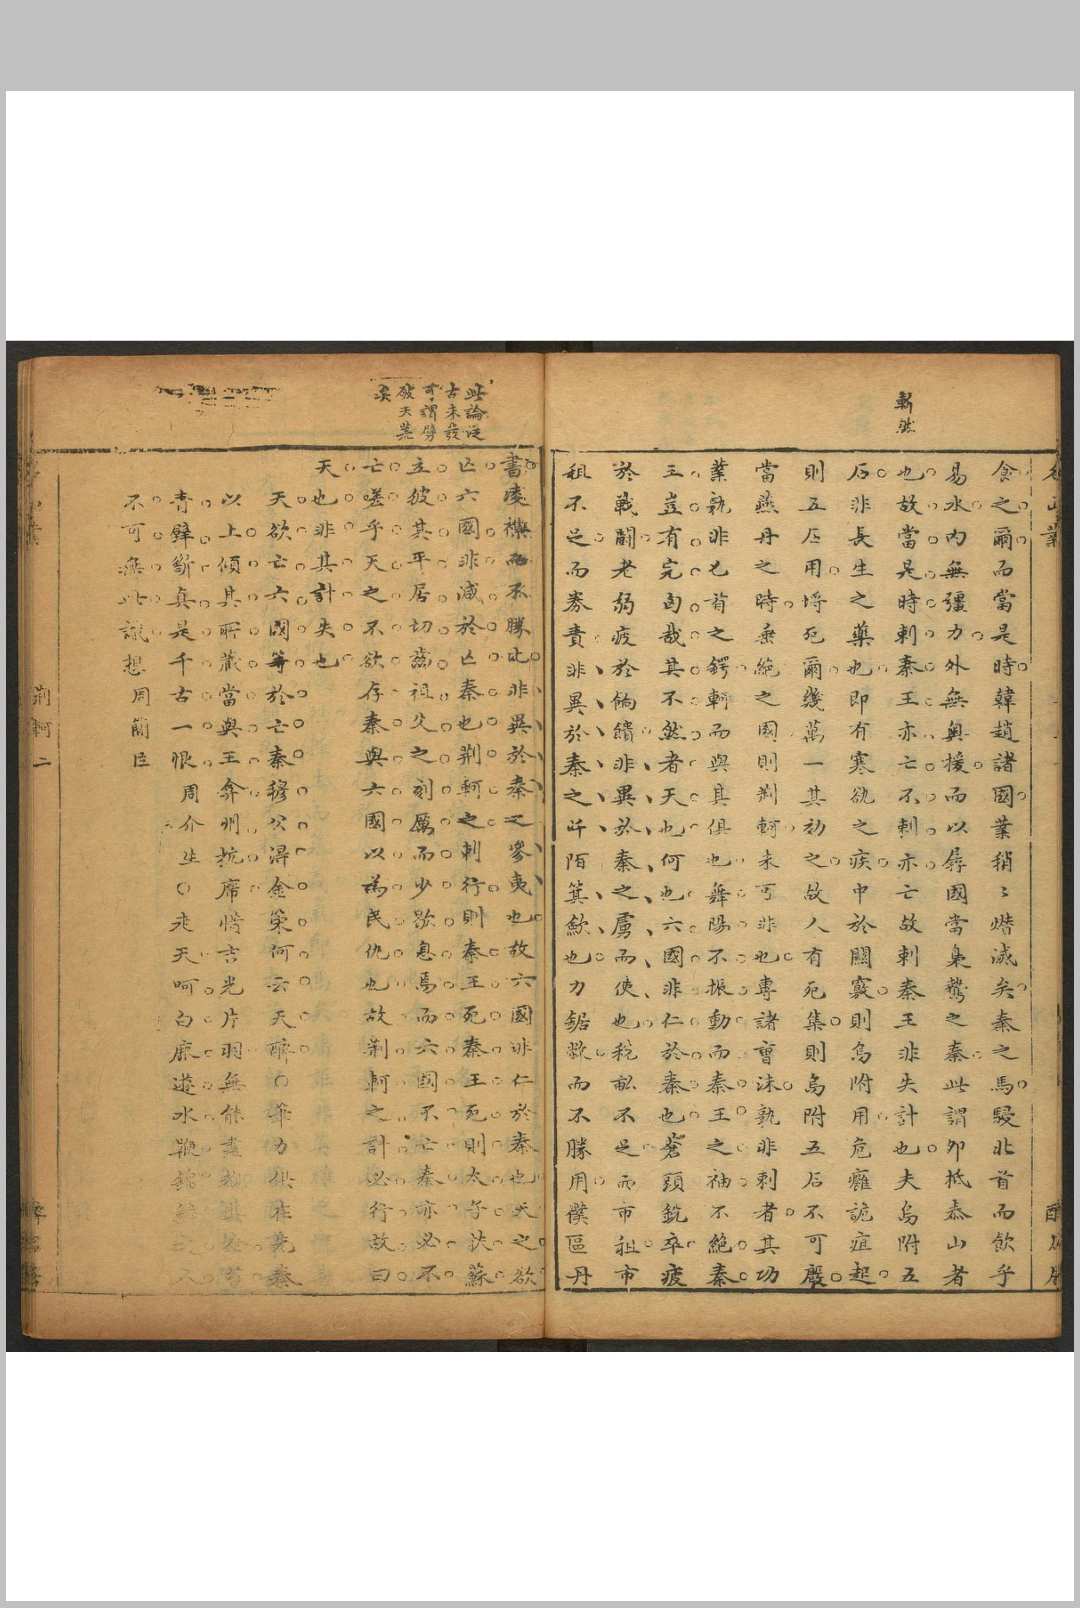 斬然
食之爾而當是時韓趙諸國業稍〻熸滅矣秦之馬騣北首而飲乎
易水內無彊力外無奧援而以孱國當梟鷙之秦此謂夘抵泰山者
也故當是時刺秦王亦亡不刺亦亡故刺秦王非失計也夫烏附五
石非長生之藥也即有寒欬之疾中於關竅則烏附用危癰詭疽起
則五石用將死爾幾萬一其効之故人有死集則烏附五石不可廢
當燕丹之時垂絕之國則荆軻未可非也專諸曹沫孰非刺者其功
業孰非七首之鍔軻而與其俱也舞陽不振動而秦王之袖不絕秦
王豈有完匈哉其不然者天也何也六國非仁於秦也蒼頭銳卒疲
於戰鬭老弱疲於餉饋非異於秦之虜而使也稅畝不足而市租市
租不足而券責非異於秦之阡陌箕歛也刀鋸襍而不勝用僕區丹
書凌襍而不勝比非異於秦之參夷也故六國非仁於秦也天之欲
亡六國非滅於亡秦也荆軻之刺行則秦王死秦王死則太子扶蘇
立彼其平居切齒祖父之刻厲而少歇息焉而六國不亡秦亦必不
亡嗟乎天之不欲存秦與六國以為民仇也故荆軻之計必行故曰
天也非其計失也
天欲亡六國等於亡秦穆公得金策何云天醉〇筆力俱在亮秦
以上傾其所藏當與王弇州抗席惜吉光片羽無能盡
青蠁斷真是千古一恨周介生〇兆天呵白鹿遊水鞭
不可無此識想周簡臣
此論從
古未發
可謂劈
破天荒
矣
荆軻 二